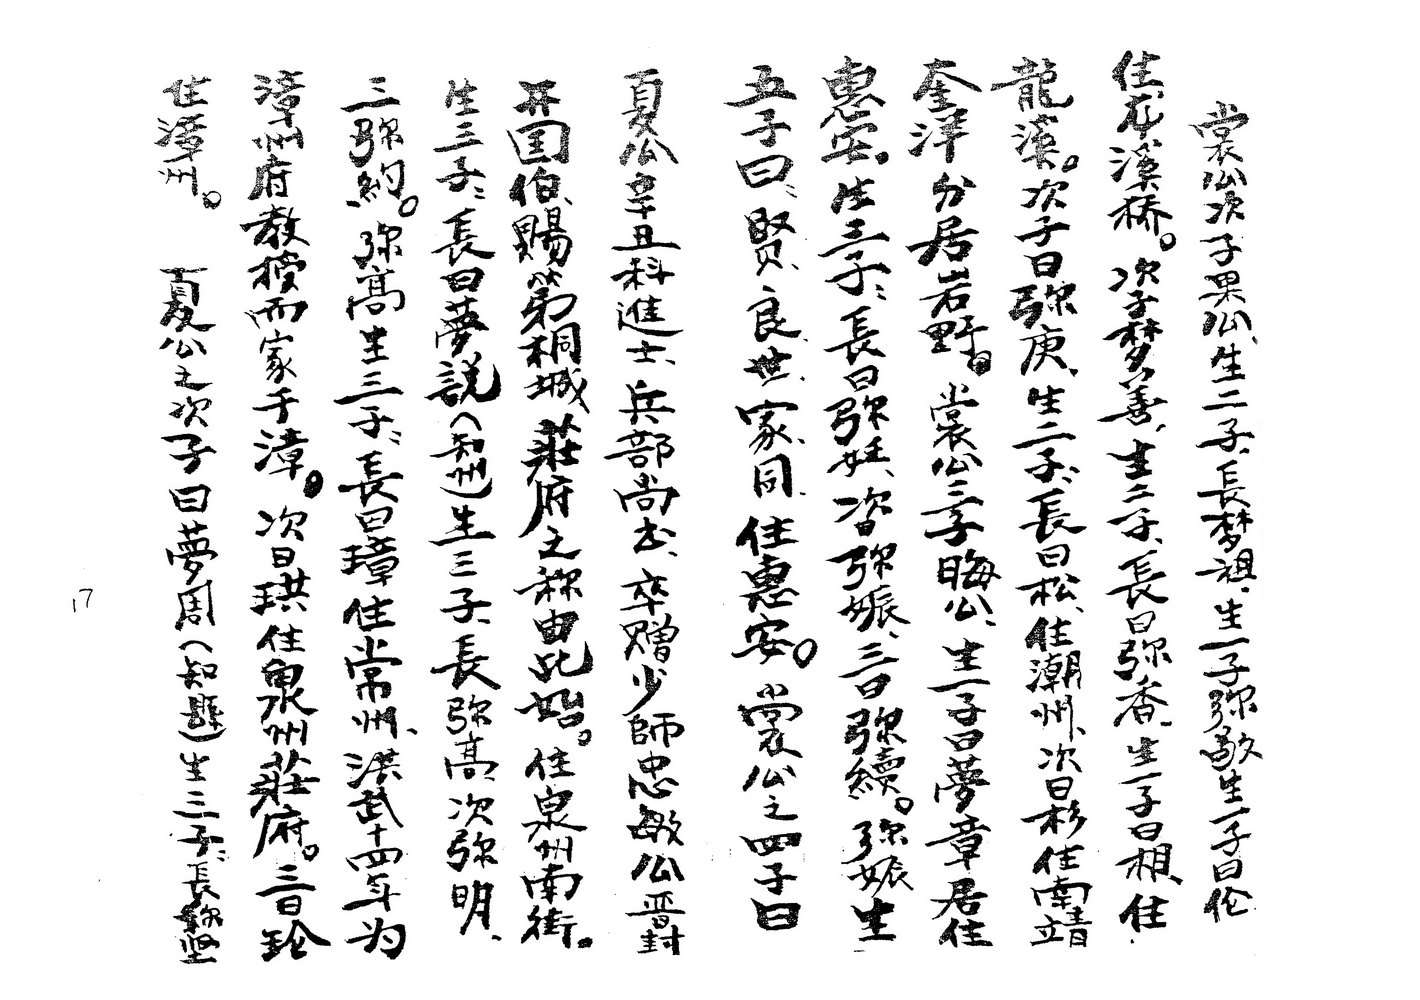 裳公次子果公、生二子、長梦祖、生一子弥敬生一子曰伦
住龙溪桥。次子梦善、生二子、長曰弥香、生一子曰相、住
龍溪。次子曰弥庚、生二子、長曰松、住潮州、次曰杉住南靖
奎洋分居岩野。裳公三子晦公、生一子曰夢章居住
惠安。生三子、長曰弥妊、次曰弥娠、三曰弥續。弥娠生
五子曰、賢、良、世、家、同、住惠安。裳公之四子曰
夏公辛丑科進士、兵部尚书、卒贈少師忠敏公晋封
开国伯、賜第桐城莊府之称由此始。住泉州南街。
生三子、長曰夢説（知州）生三子、長弥高、次弥明、
三弥約。弥高生三子、長曰璋住常州、洪武十四年为
漳州府教授而家于漳。次曰珙住泉州莊府。三曰玲
住漳州。夏公之次子曰夢周（知縣）生三子、長弥坚
17